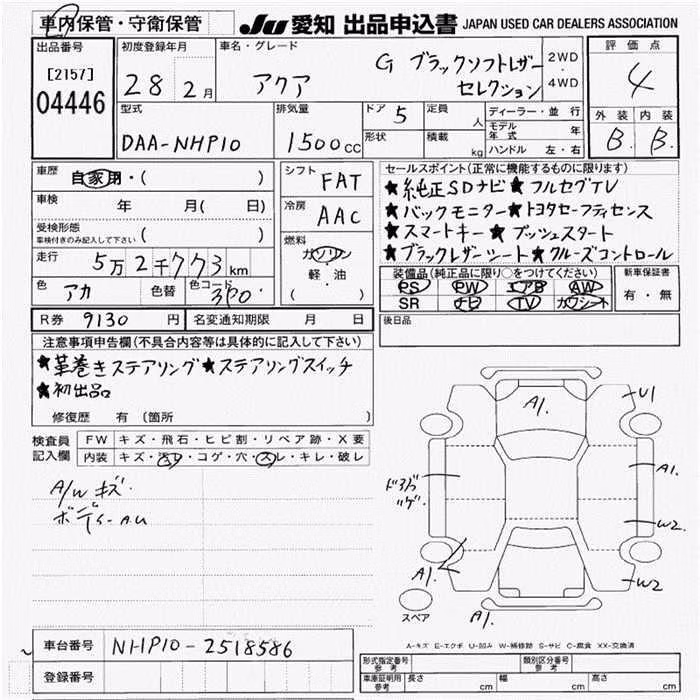 車内保管・守衛保管
JU 愛知 出品申込書 JAPAN USED CAR DEALERS ASSOCIATION
出品番号
[2157]
04446
初度登録年月
28 2月
車名・グレード
アクア
G ブラックソフトレザー
セレクション
2WD
・
4WD
評価点
4
外装 内装
B. B.
型式
DAA-NHP10
排気量
1500cc
ドア 5
定員 人
形状
積載 kg
ディーラー・並行
モデル年式 年
ハンドル 左・右
車歴
自家用・( )
車検
年 月( 日)
受検形態
車検付きのみ記入して下さい ( )
走行
5万2千773km
色 アカ 色替 色コード 3P0.
シフト
FAT
冷房
AAC
燃料
ガソリン
軽・油
( )
セールスポイント(正常に機能するものに限ります)
★純正SDナビ★フルセグTV
★バックモニター★トヨタセーフティセンス
★スマートキー★プッシュスタート
★ブラックレザーシート★クルーズコントロール
装備品(純正品に限り○をつけてください)
PS PW エアB AW
SR ナビ TV カワシート
新車保証書
有・無
R券 9130 円 名変通知期限 月 日
後日品
注意事項申告欄(不具合内容等は具体的に記入して下さい)
★革巻きステアリング★ステアリングスイッチ
★初出品
修復歴 有 (箇所 )
検査員
記入欄
FW キズ・飛石・ヒビ割・リペア跡・X要
内装 キズ・汚レ・コゲ・穴・スレ・キレ・破レ
A/W キズ.
ボディーA.U
A1.
U1
A1.
W2
W2
A1.
A1.
スペア
A-キズ E-エクボ U-凹み W-補修跡 S-サビ C-腐食 XX-交換済
車台番号 NHP10-2518586
登録番号
形式指定番号
参考
類別区分番号
参考
車庫証明用
参考
長さ cm 幅 cm 高さ cm